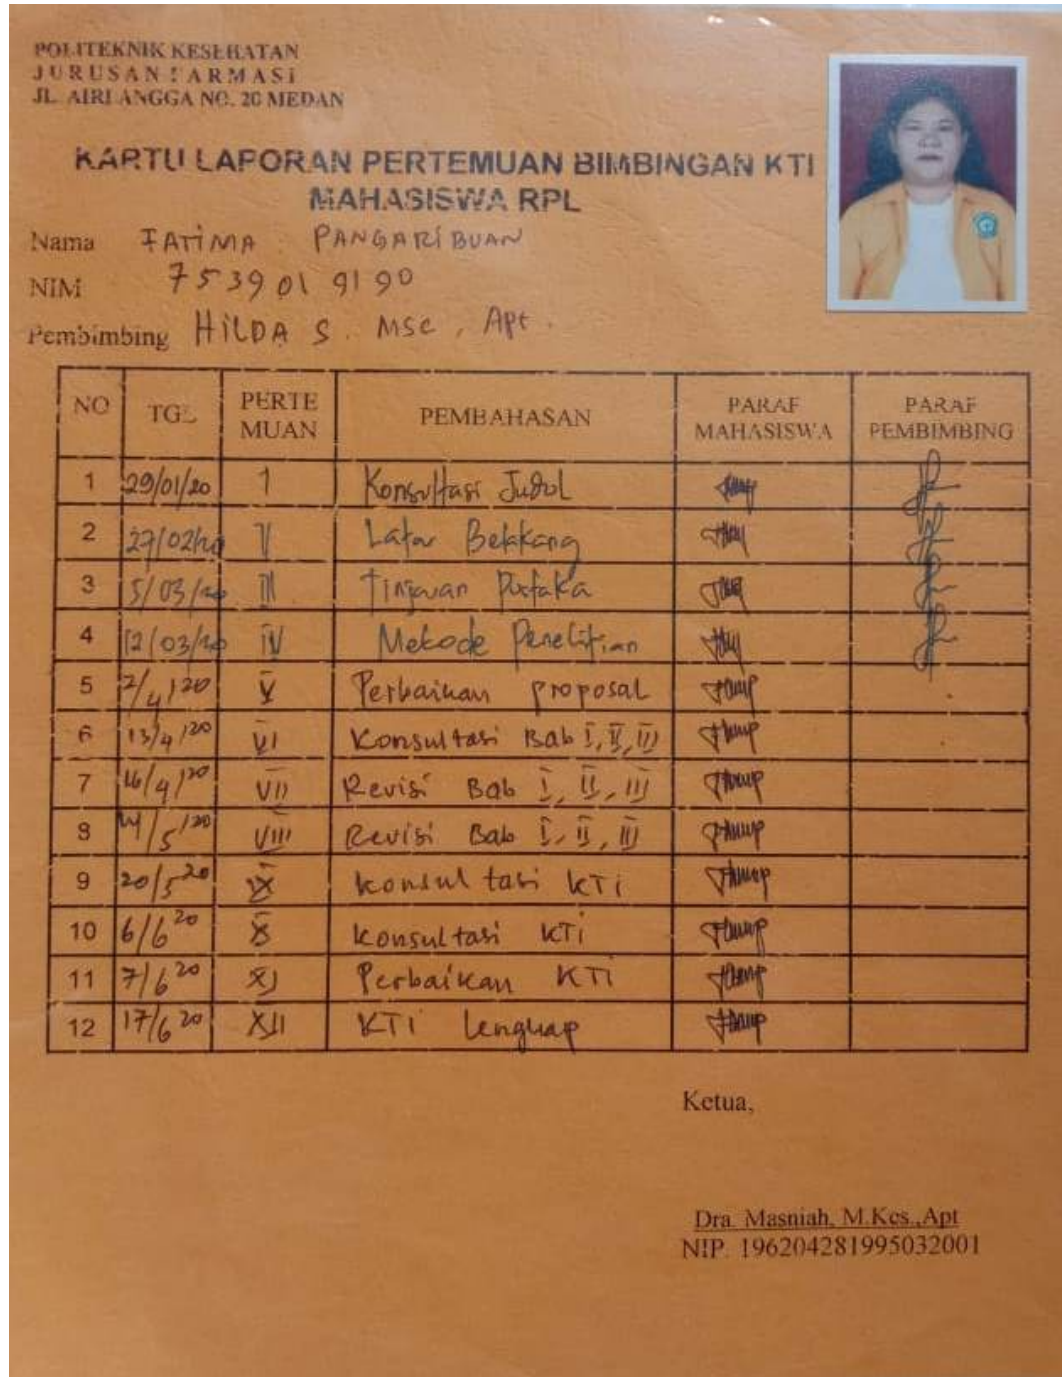 POLITEKNIK KESEHATAN
JURUSAN FARMASI
JL. AIRLANGGA NO. 20 MEDAN
KARTU LAPORAN PERTEMUAN BIMBINGAN KTI
MAHASISWA RPL
Nama FATIMA PANGARIBUAN
NIM 7539019190
Pembimbing HILDA S. MSc, Apt.
NO TGL PERTE MUAN PEMBAHASAN PARAF MAHASISWA PARAF PEMBIMBING
1 29/01/20 1 Konsultasi Judul
2 27/02/20 II Latar Belakang
3 5/03/20 III Tinjauan Pustaka
4 12/03/20 IV Metode Penelitian
5 2/4/20 V Perbaikan proposal
6 13/4/20 VI Konsultasi Bab I, II, III
7 16/4/20 VII Revisi Bab I, II, III
8 /5/20 VIII Revisi Bab I, II, III
9 20/5 20 IX Konsultasi KTi
10 6/6 20 X Konsultasi KTi
11 7/6 20 XI Perbaikan KTi
12 17/6 20 XII KTi Lengkap
Ketua,
Dra. Masniah, M.Kes.,Apt
NIP. 196204281995032001